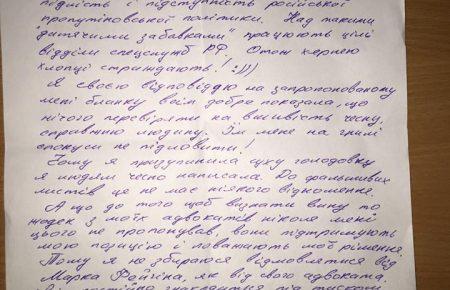 підність і підступність російської
пропутіновської політики. Над такими
"дитячими забавками" працюють цілі
відділи спецслужб РФ. Отож хернею
хлопці страждають! :)))
Я своєю відповіддю на запропонованому
мені бланку всім добре показала, що
нічого перевіряти на вшивість чесну,
справжню людину. Їм мене на гнилі
спокуси не підловити!
Чому я призупинила суху голодовку
я людям чесно написала. До фальшивих
листів це не має ніякого відношення.
А що до того щоб визнати вину то
жоден з моїх адвокатів ніколи мені
цього не пропонував, вони підтримують
мою позицію і поважають мої рішення.
Тому я не збираюся відмовлятися від
Марка Фейгіна, як від свого адвоката.